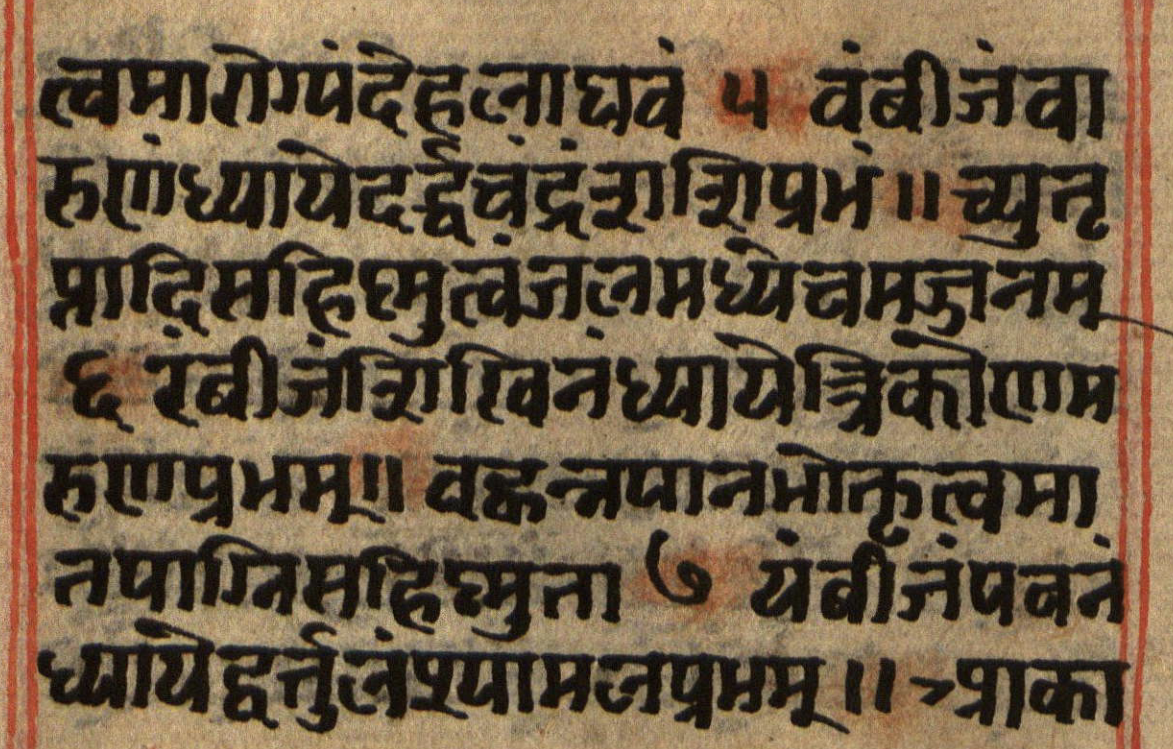 त्वमारोग्यंदेहलाघवं ५ वंबीजंवा
रुणंध्यायेदर्द्धचंद्रंशशिप्रभं ॥ च्युतृ
प्रादिसहिष्मुत्वंजलमध्येचमज्जनम्
६ रंबीजंशिखिनंध्यायेत्रिकोणम
रुणप्रभम्॥ वह्कन्नपानभोक्तृत्वमा
तपाग्निसहिष्मुता ७ यंबीजंपवनं
ध्यायेद्वर्त्तुलंश्यामलप्रभम् ॥ आका